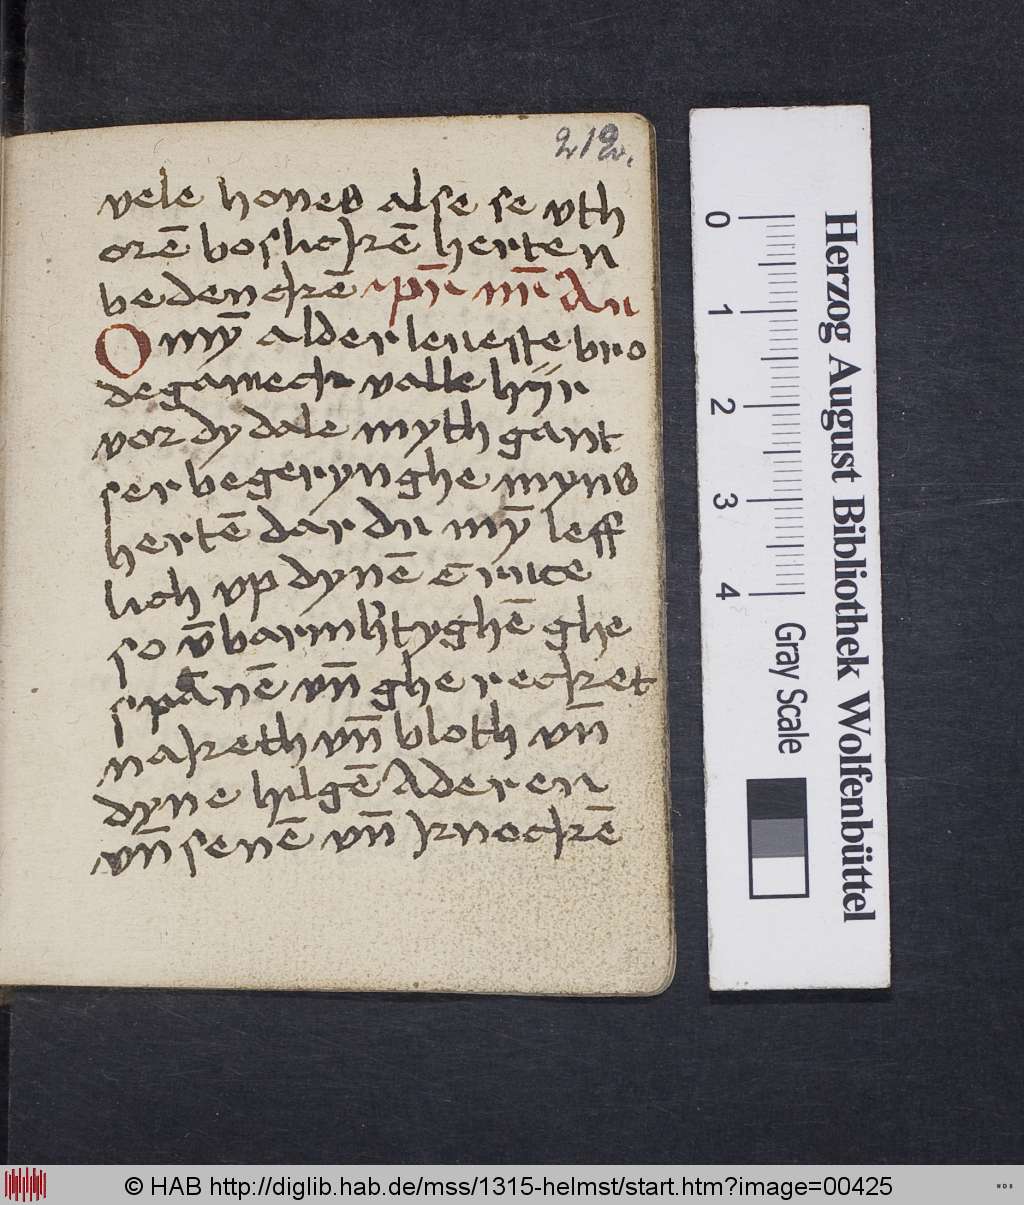 212.
vele hones alse se vth
orē boslickē herten
bedenckē p̄r nr̄ Au
O mȳ alderleueste bro
degam eck valle hijr
vor dy dale myth gant
ser begerynghe myns
hertē dar du mȳ leff
lich vp dynē cruce
so v̄barmh'tyghē ghe
spānē vn̄ gherecket
naketh vn̄ bloth vn̄
dyne hilgē Aderen
vn̄ senē vn̄ knockē
Herzog August Bibliothek Wolfenbüttel
0 1 2 3 4
Gray Scale
© HAB http://diglib.hab.de/mss/1315-helmst/start.htm?image=00425